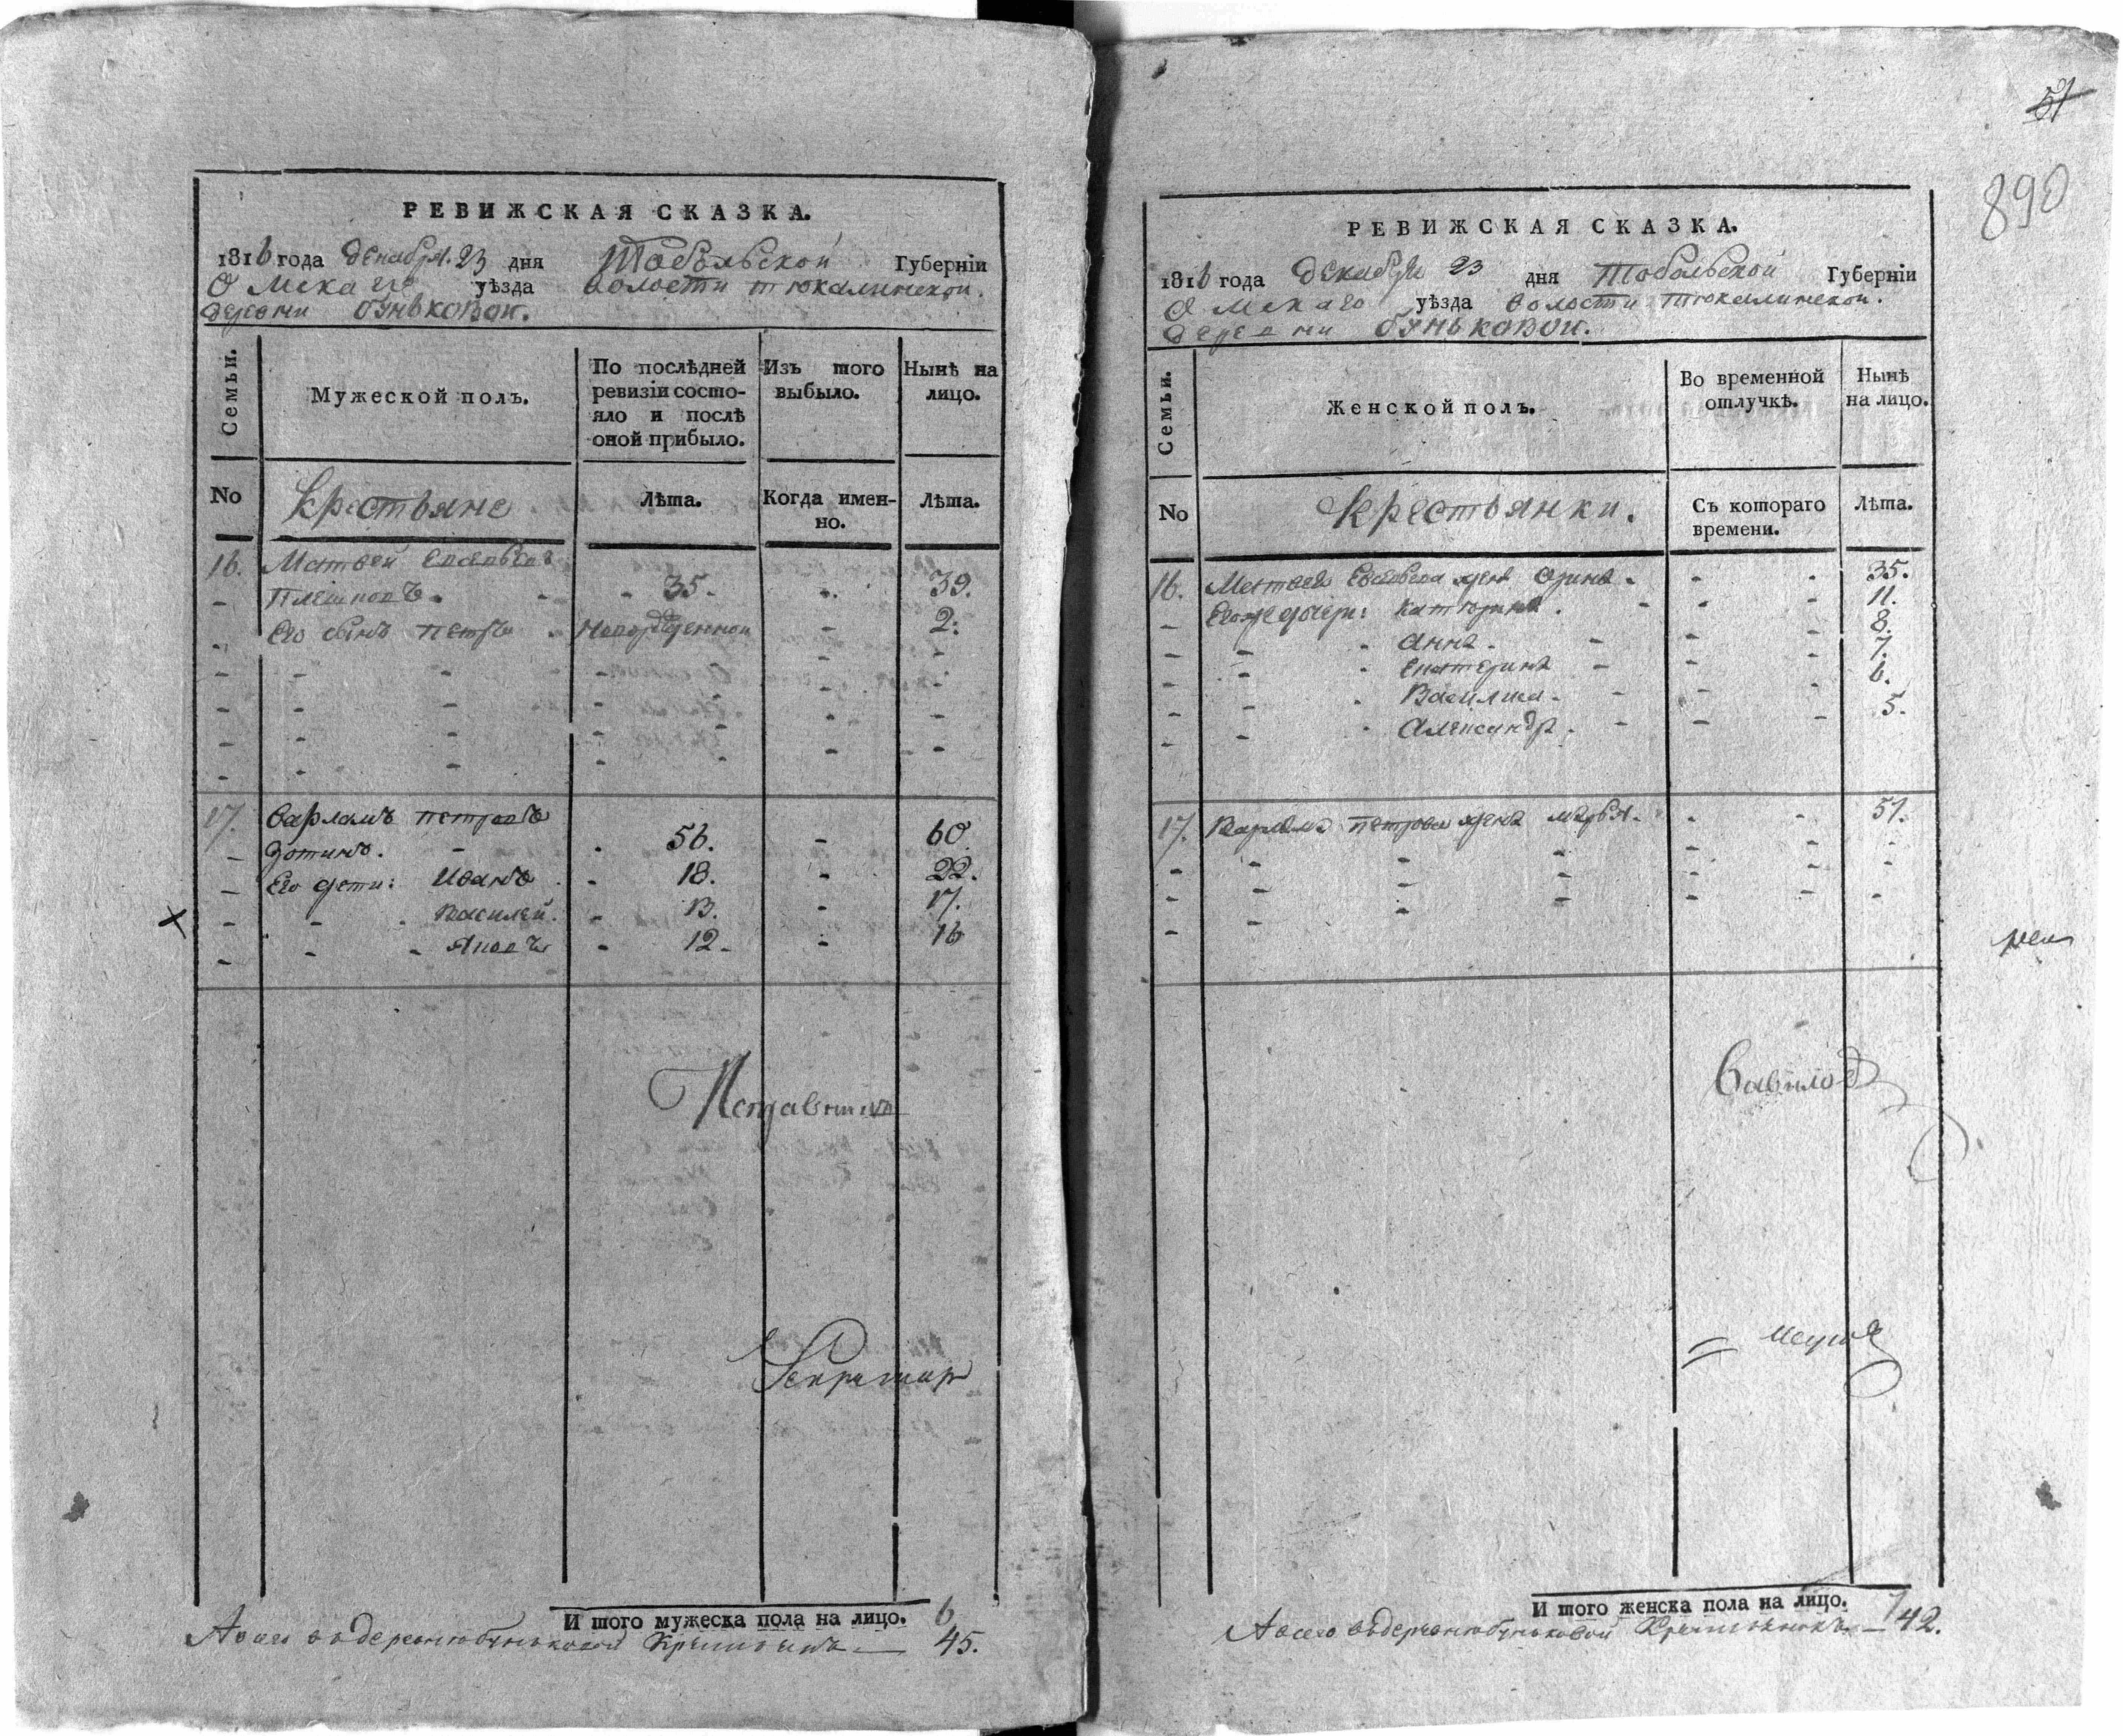 РЕВИЖСКАЯ СКАЗКА.
1816 года декабря 23 дня Тобольской Губернїи
Омскаго уѣзда волости тюкалинской.
деревни бунковой.
Семьи.
Мужеской полъ.
По послѣдней ревизїи состояло и послѣ оной прибыло.
Изъ того выбыло.
Нынѣ на лицо.
No
крестьяне
Лѣта.
Когда именно.
Лѣта.
16. Матвей
35. 39.
Его сынъ петръ Новорожденной 2.
17. Варламъ петровъ
56. 60.
Его дети: Иванъ 18. 22.
Василей. 13. 17.
Яковъ 12. 16
Секретарь
И того мужеска пола на лицо. 6
А всего въ деревне бунковой крестьянъ 45.
51
890
РЕВИЖСКАЯ СКАЗКА.
1816 года декабря 23 дня Тобольской Губернїи
Омскаго уѣзда волости тюкалинской.
деревни бунковой.
Семьи.
Женской полъ.
Во временной отлучкѣ.
Нынѣ на лицо.
No
крестьянки.
Съ котораго времени.
Лѣта.
16. Матвея жена Арина. 35.
Егоже дочери: Катерина. 11.
Анна. 8.
Екатерина 7.
Василиса. 6.
Александра. 5.
17. Варлама петрова жена марья. 51.
Вавилов
И того женска пола на лицо. 7
А всего въ деревне бунковой крестьянокъ 42.